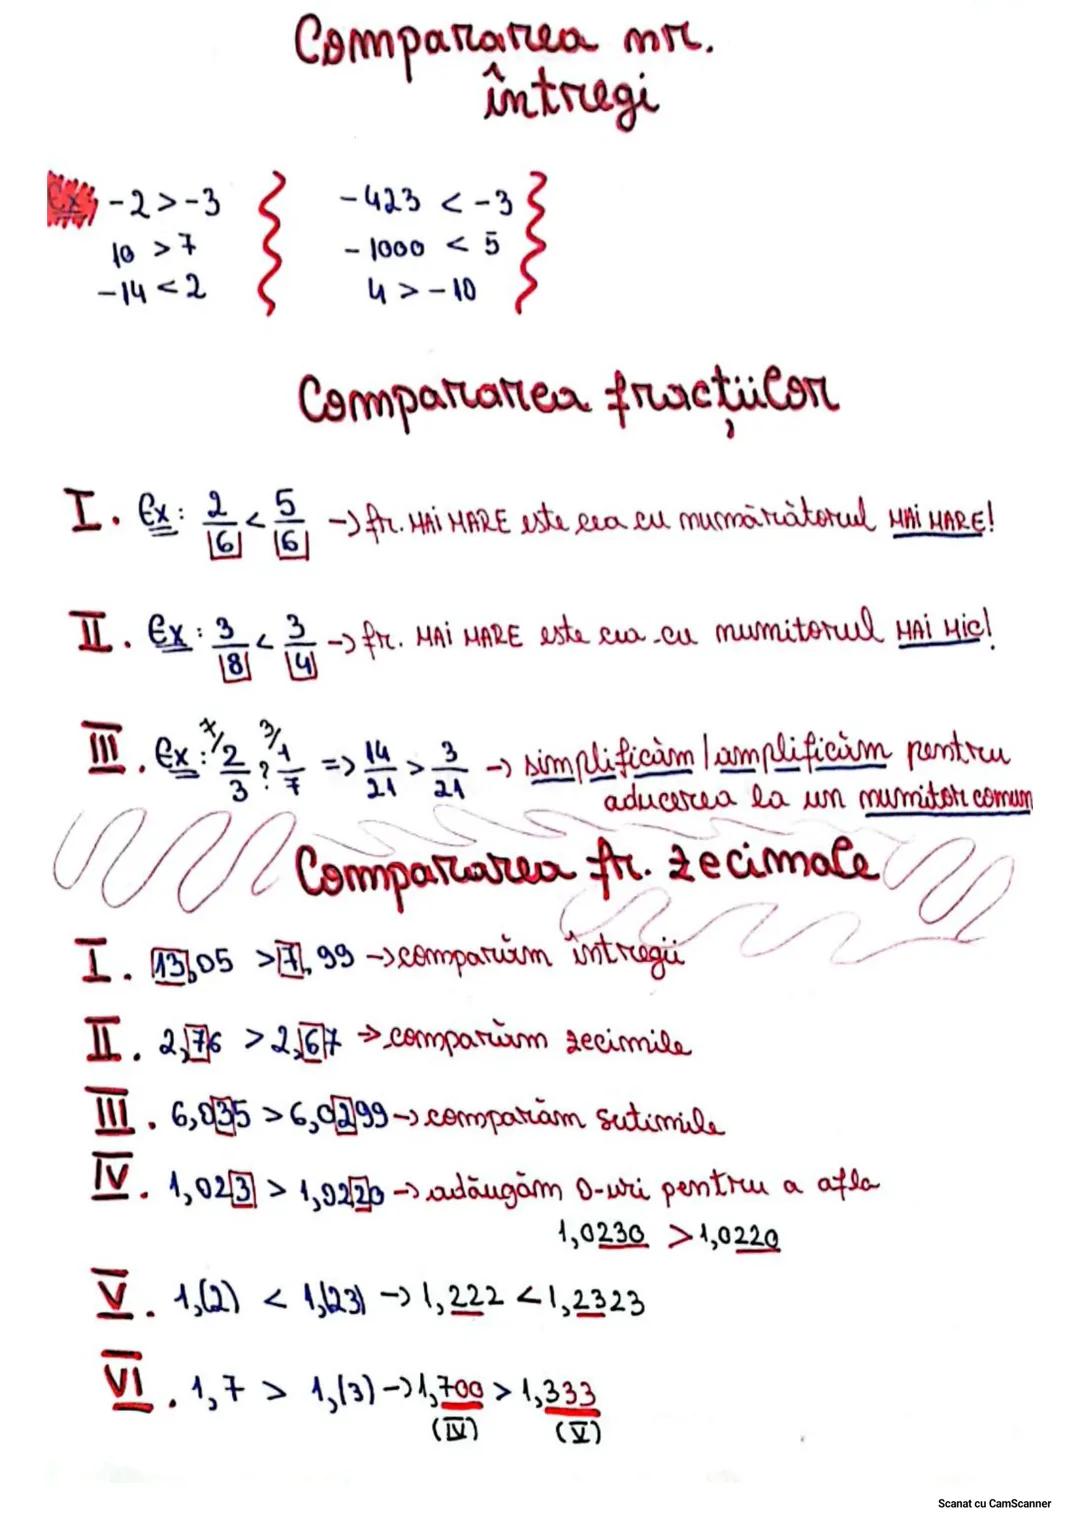 Compararea nr.
întregi
Ex: -2 > -3
10 > 7
-14 < 2
-423 < -3
-1000 < 5
4 > -10
Compararea fracțiilor
I. Ex: 2/6 < 5/6 -> fr. MAI MARE este cea cu numărătorul MAI MARE!
II. Ex: 3/8 < 3/4 -> fr. MAI MARE este cea cu numitorul MAI MIC!
III. Ex: 7/ 2/3 ? 3/ 1/7 => 14/21 > 3/21 -> simplificăm / amplificăm pentru
aducerea la un numitor comun
Compararea fr. zecimale
I. 13,05 > 7,99 -> comparăm întregii
II. 2,76 > 2,67 -> comparăm zecimile
III. 6,035 > 6,0299 -> comparăm sutimile
IV. 1,023 > 1,0220 -> adăugăm 0-uri pentru a afla
1,0230 > 1,0220
V. 1,(2) < 1,(23) -> 1,222 < 1,2323
VI. 1,7 > 1,(3) -> 1,700 > 1,333
(IV) (V)
Scanat cu CamScanner